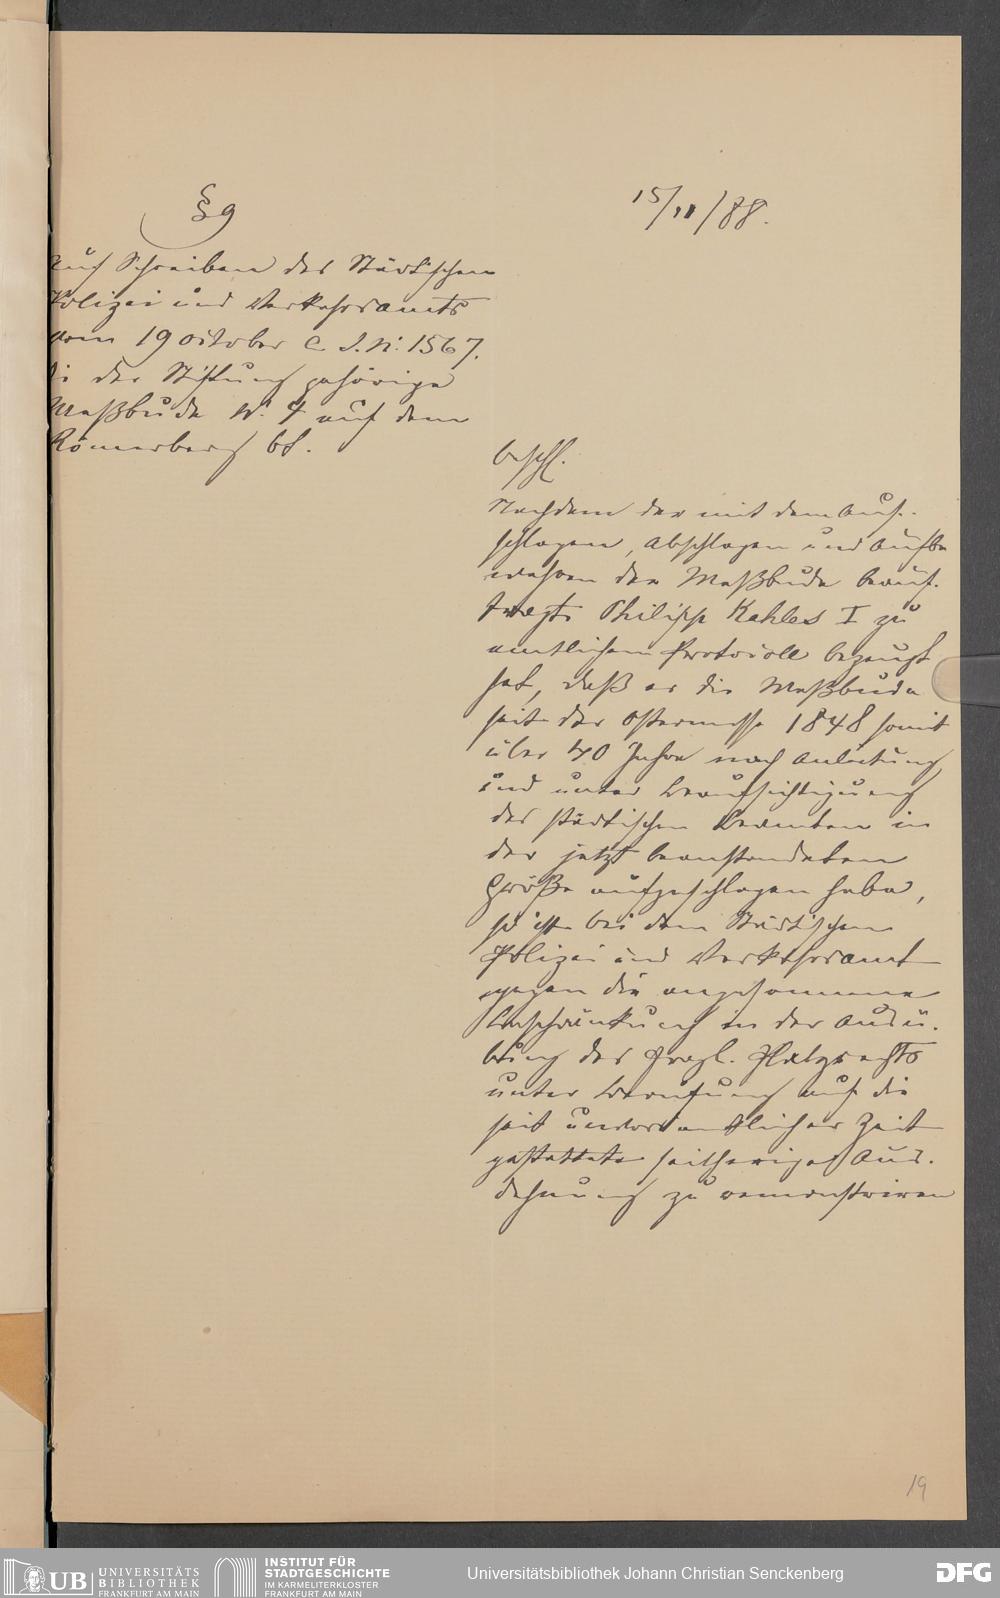 § 9
15/11/88.
Auf Schreiben des Städtischen
Polizei und Verkehrsamts
vom 19 october c J. N: 1567.
die der Stiftung gehörige
Meßbude N: 4 auf dem
Römerberg btf.
beschl.
Nachdem der mit dem Auf-
schlagen, Abschlagen und Aufbe
wahren der Meßbude beauf-
tragte Philipp Kahles I zu
amtlichem Protocoll bezeugt
hat, daß er die Meßbude
seit der Ostermesse 1848 somit
über 40 Jahre nach Anleitung
und unter Beaufsichtigung
der städtischen Beamten in
der jetzt beanstandeten
Größe aufgeschlagen habe,
so ist bei dem Städtischen
Polizei und Verkehrsamt
gegen die angesonnene
Beschränkung in der Ausü-
bung des fragl. Platzrechts
unter Berufung auf die
seit unvordenklicher Zeit
gestattete seitherige Aus-
dehnung zu remonstriren
19
UB UNIVERSITÄTS
BIBLIOTHEK
FRANKFURT AM MAIN
INSTITUT FÜR
STADTGESCHICHTE
IM KARMELITERKLOSTER
FRANKFURT AM MAIN
Universitätsbibliothek Johann Christian Senckenberg
DFG